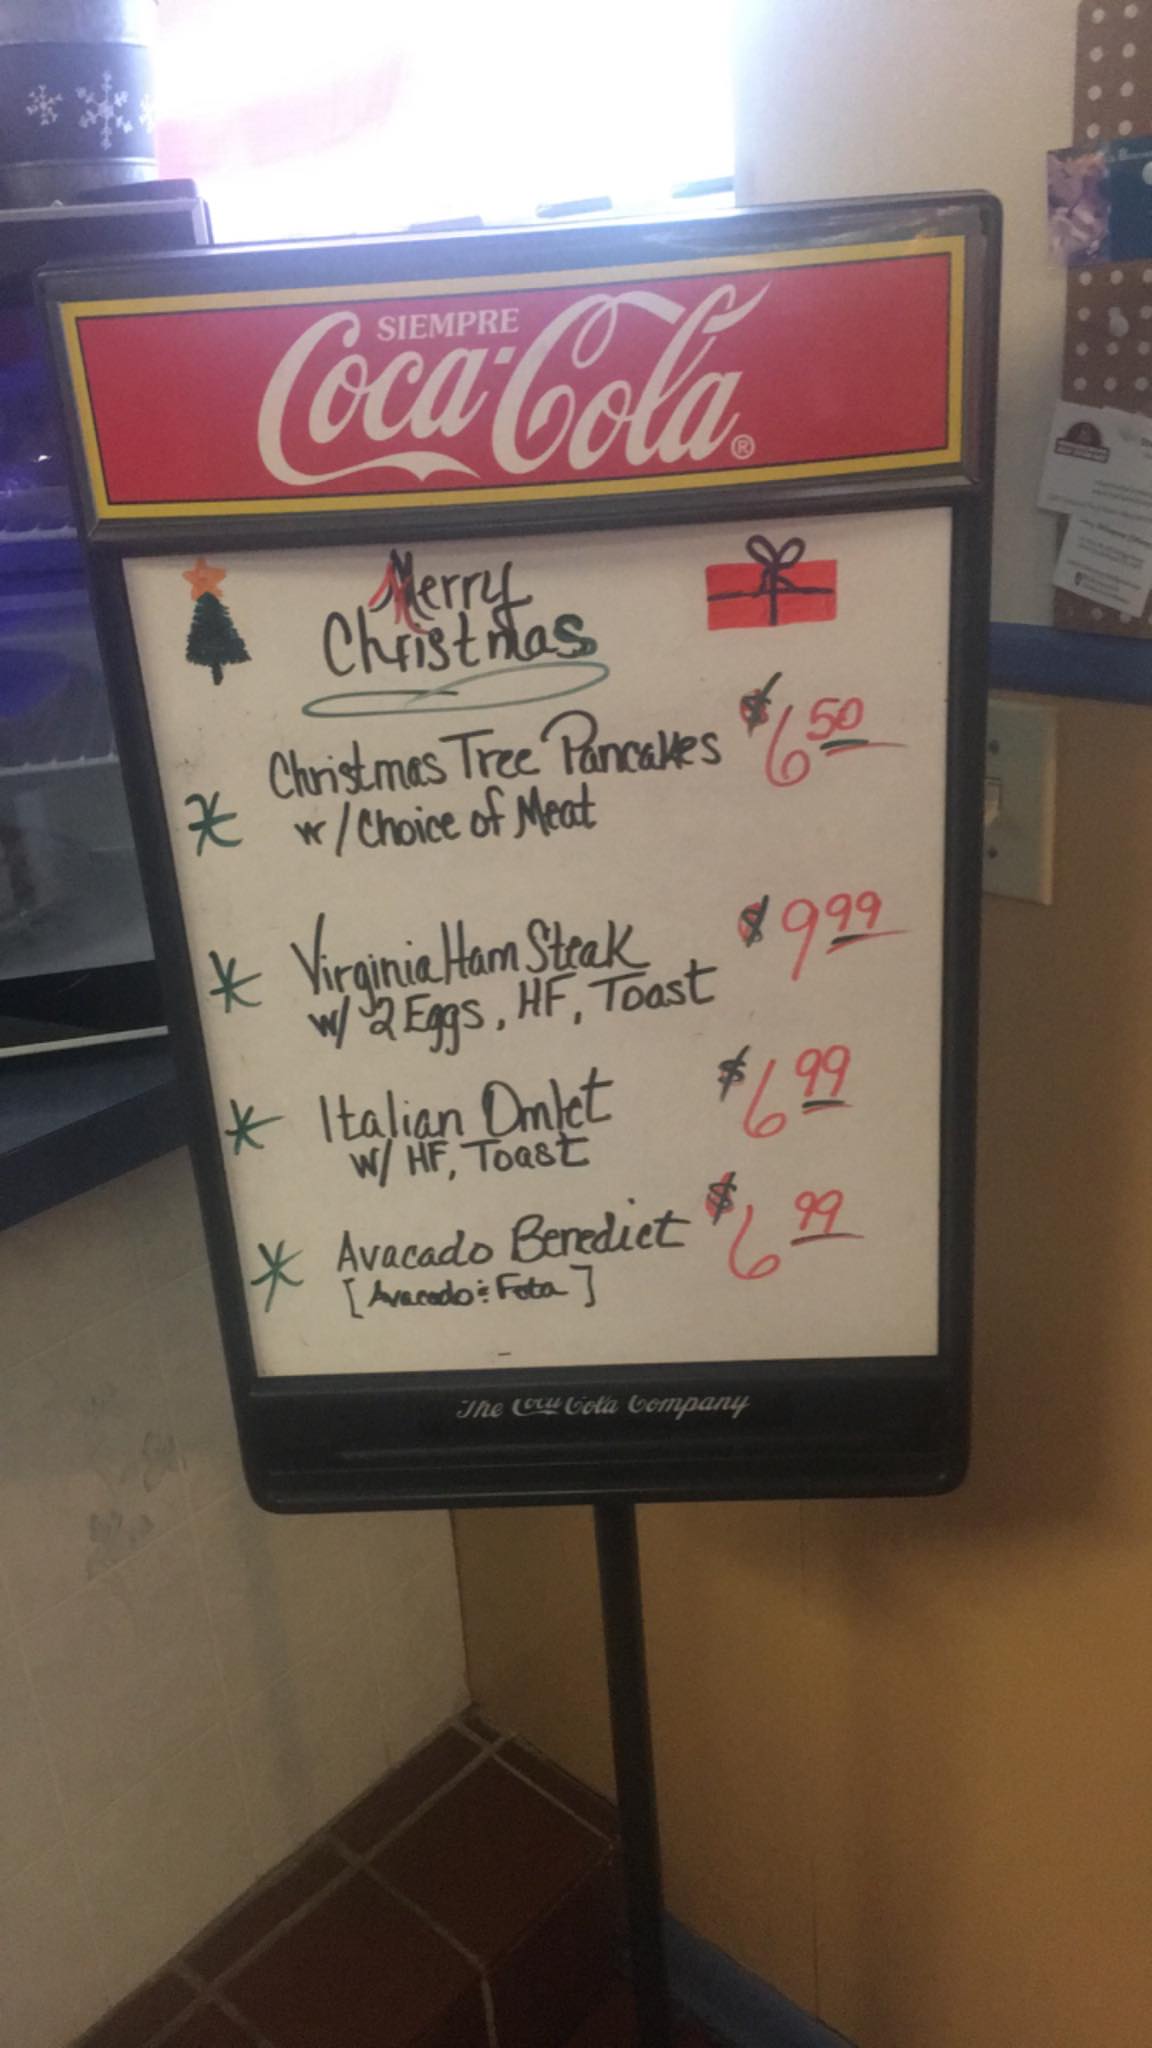 SIEMPRE
Coca-Cola®
Merry
Christmas
Christmas Tree Pancakes $6.50
w/ Choice of Meat
Virginia Ham Steak $9.99
w/ 2 Eggs, HF, Toast
Italian Omlet $6.99
w/ HF, Toast
Avacado Benedict $6.99
[Avacado & Feta]
The Coca-Cola Company